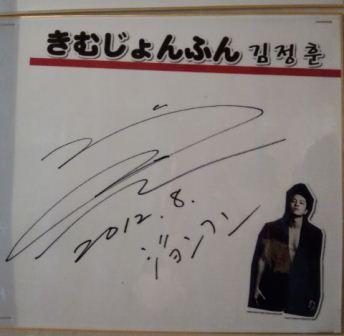 きむじょんふん 김정훈
2012.8.
ジョンフン